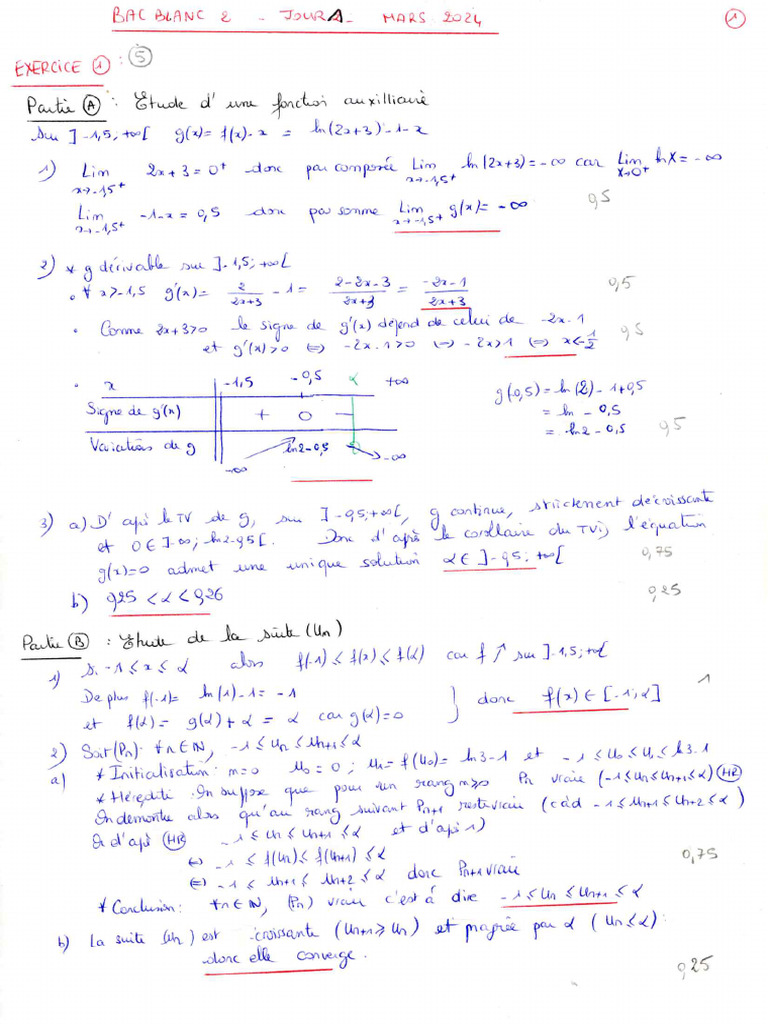 BAC BLANC 2 - JOUR A - MARS 2024 ①
EXERCICE ① : ⑤
Partie Ⓐ : Etude d'une fonction auxilliaire
Sur ]-1,5, +∞[ g(x) = f(x)-x = ln(2x+3)-1-x
1) Lim x→-1,5⁺ 2x+3 = 0⁺ donc par composée Lim x→-1,5⁺ ln(2x+3) = -∞ car Lim X→0⁺ lnX = -∞
Lim x→-1,5⁺ -1-x = 0,5 donc par somme Lim x→-1,5⁺ g(x) = -∞ 0,5
2) * g dérivable sur ]-1,5; +∞[
• ∀ x>-1,5 g'(x) = 2/(2x+3) - 1 = (2-2x-3)/(2x+3) = (-2x-1)/(2x+3) 0,5
• Comme 2x+3>0 le signe de g'(x) dépend de celui de -2x-1 0,5
et g'(x)>0 ⇔ -2x-1>0 ⇔ -2x>1 ⇔ x<-1/2
• x -1,5 -0,5 α +∞
Signe de g'(x) + 0 -
Variations de g -∞ ln2-0,5 0 -∞
g(-0,5) = ln(2)-1+0,5
= ln - 0,5
= ln2-0,5 0,5
3) a) D'après le TV de g, sur ]-0,5; +∞[, g continue, strictement décroissante
et 0 ∈ ]-∞; ln2-0,5[. Donc d'après le corollaire du TVi, l'équation
g(x)=0 admet une unique solution α ∈ ]-0,5; +∞[ 0,75
b) 0,25 < α < 0,26 0,25
Partie Ⓑ : Etude de la suite (Un)
1) Si -1 ≤ x ≤ α alors f(-1) ≤ f(x) ≤ f(α) car f ↗ sur ]-1,5; +∞[
De plus f(-1) = ln(1)-1 = -1
et f(α) = g(α)+α = α car g(α)=0 } donc f(x) ∈ [-1; α] 1
2) Soit (Pn): ∀n∈ℕ, -1 ≤ Un ≤ Un+1 ≤ α
a) * Initialisation: n=0 U0 = 0 ; U1 = f(U0) = ln3-1 et -1 ≤ U0 ≤ U1 ≤ ln3-1
* Hérédité: On suppose que pour un rang n≥0 Pn vraie (-1≤Un≤Un+1≤α) (HR)
On démontre alors qu'au rang suivant Pn+1 reste vraie (càd -1≤Un+1≤Un+2≤α)
Or d'après (HR) -1 ≤ Un ≤ Un+1 ≤ α et d'après 1)
⇔ -1 ≤ f(Un) ≤ f(Un+1) ≤ α
⇔ -1 ≤ Un+1 ≤ Un+2 ≤ α donc Pn+1 vraie 0,75
* Conclusion: ∀n∈ℕ, (Pn) vraie c'est à dire -1 ≤ Un ≤ Un+1 ≤ α
b) La suite (Un) est croissante (Un+1 ≥ Un) et majorée par α (Un ≤ α):
donc elle converge. 0,25